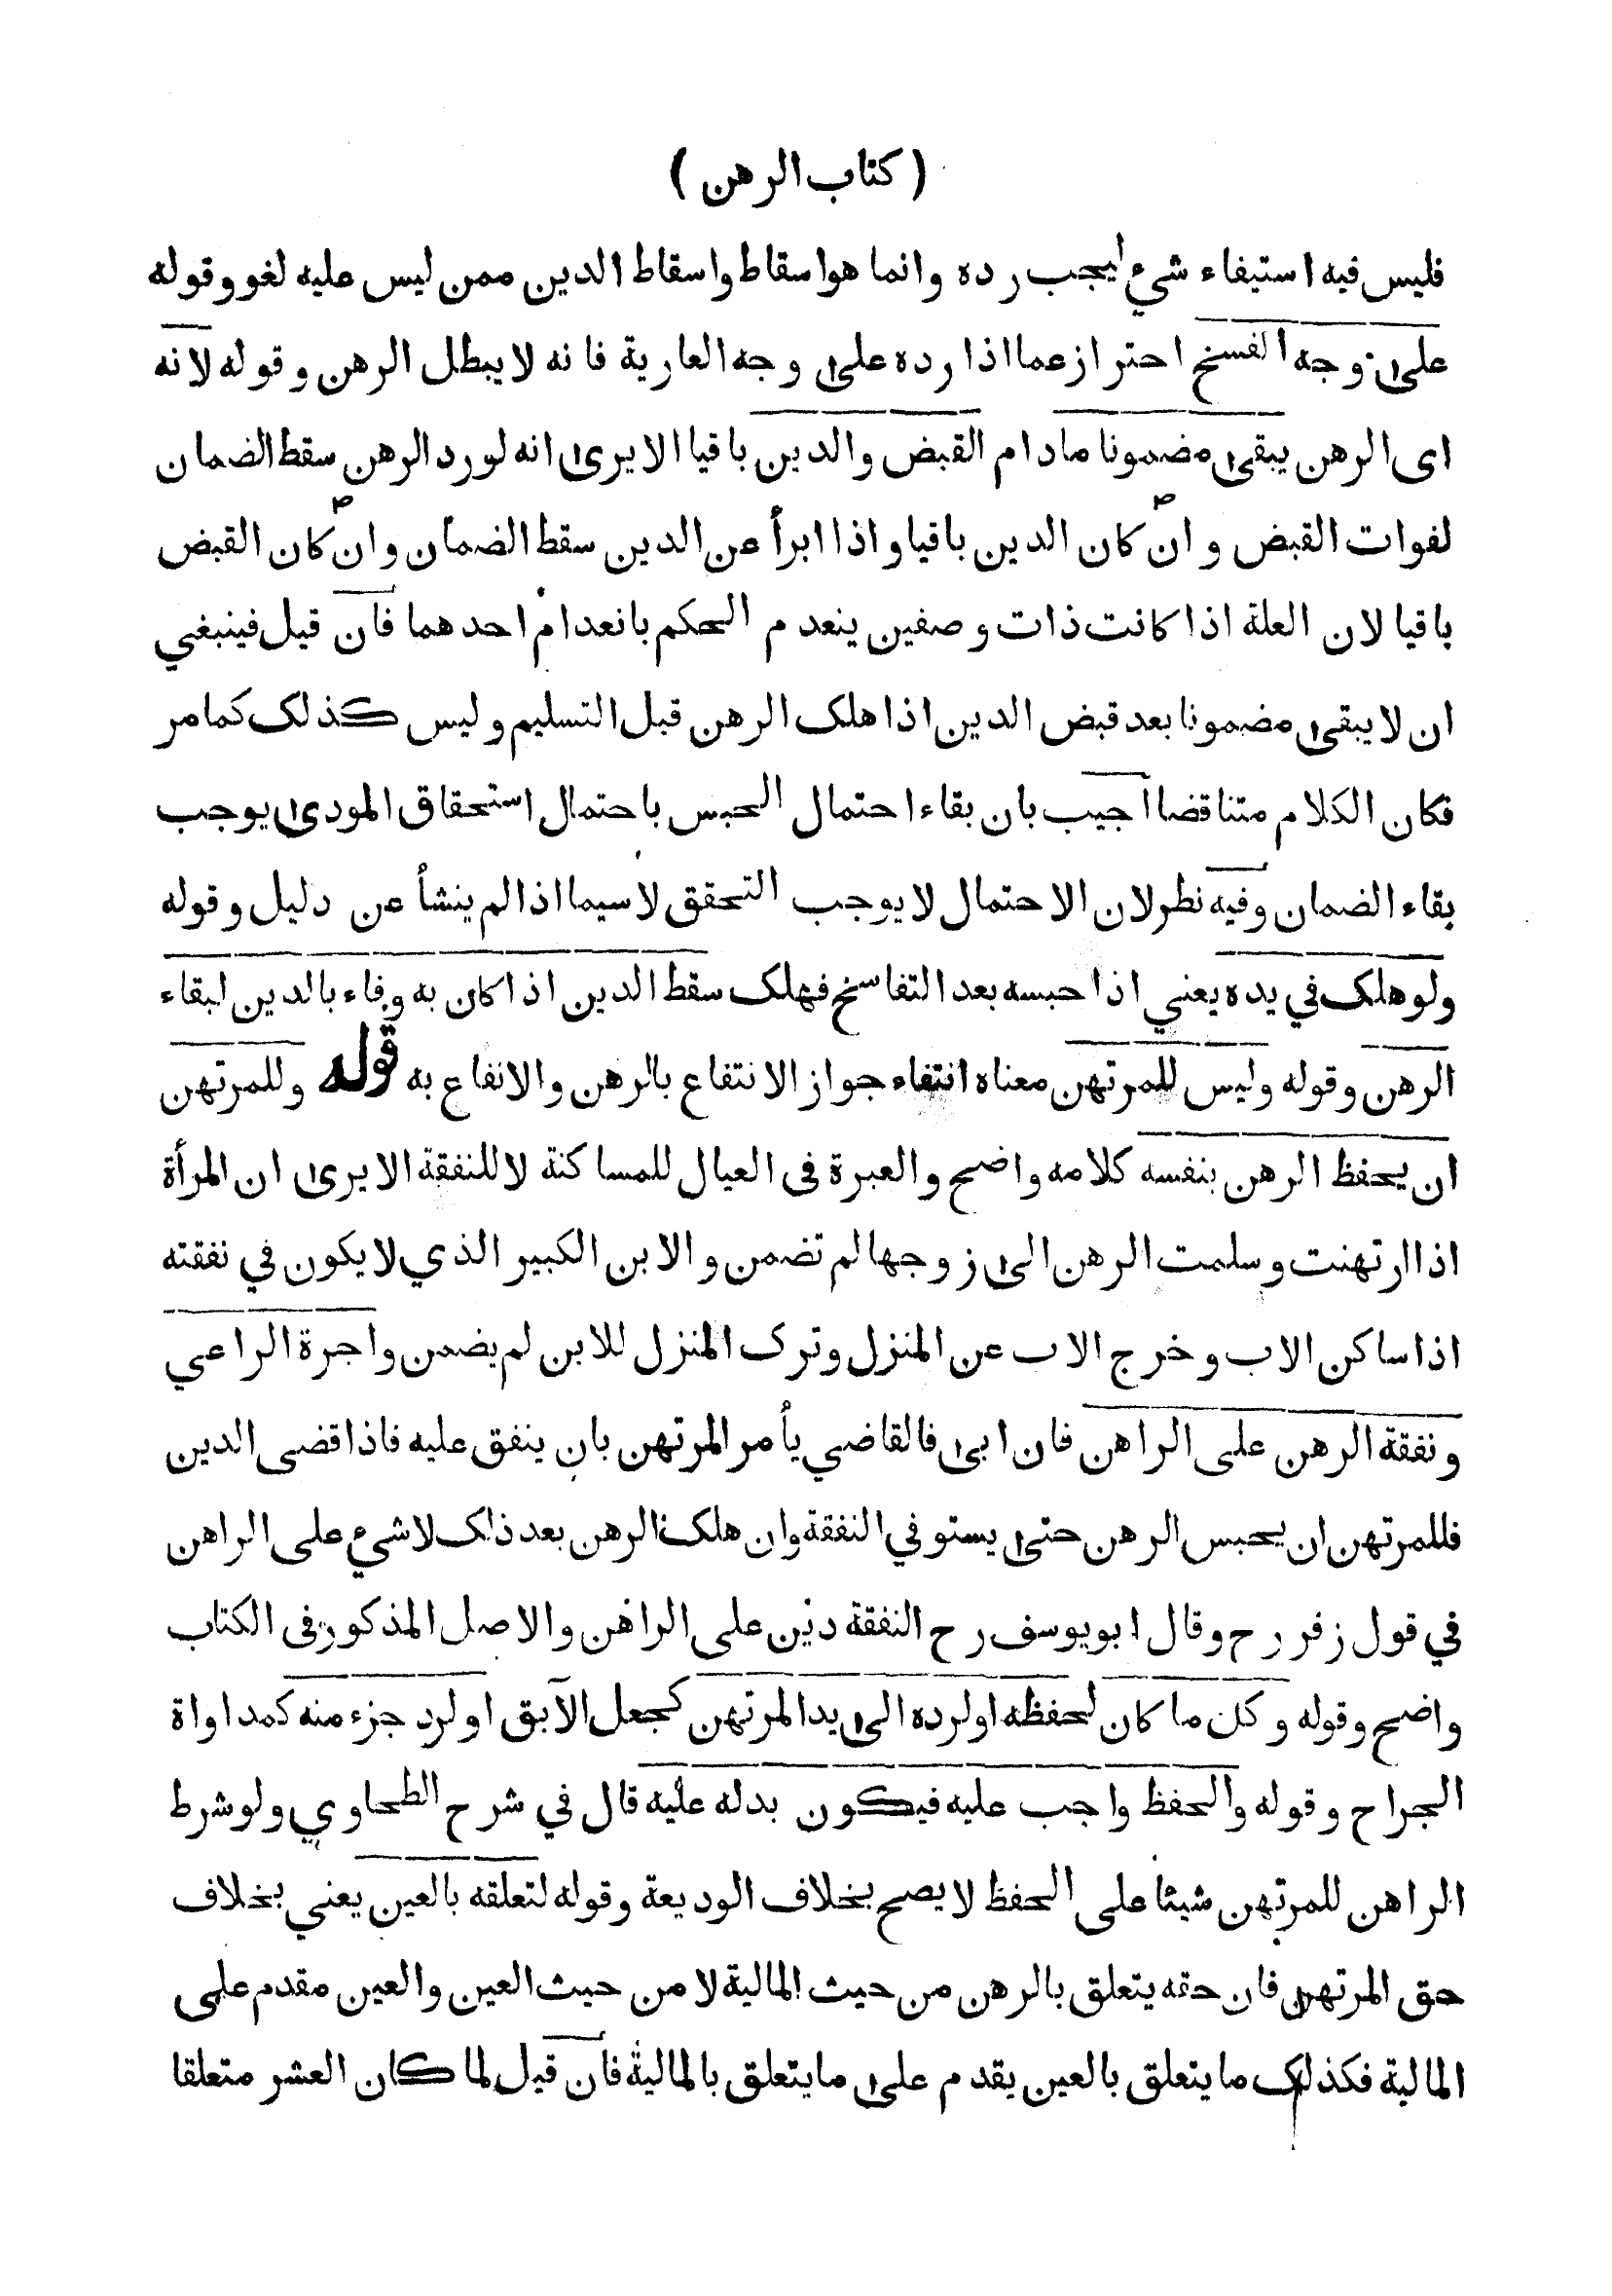 ( كتاب الرهن )
فليس فيه استيفاء شيء ليجب رده وانما هو اسقاط واسقاط الدين ممن ليس عليه لغو وقوله
على وجه الفسخ احتراز عما اذا رده على وجه العارية فانه لا يبطل الرهن وقوله لانه
اى الرهن يبقى مضمونا ما دام القبض والدين باقيا الا يرى انه لو رد الرهن سقط الضمان
لفوات القبض وان كان الدين باقيا واذا ابرأ عن الدين سقط الضمان وان كان القبض
باقيا لان العلة اذا كانت ذات وصفين ينعدم الحكم بانعدام احدهما فان قيل فينبغي
ان لا يبقى مضمونا بعد قبض الدين اذا هلك الرهن قبل التسليم وليس كذلك كما مر
فكان الكلام متناقضا اجيب بان بقاء احتمال الحبس باحتمال استحقاق المودى يوجب
بقاء الضمان وفيه نظر لان الاحتمال لا يوجب التحقق لا سيما اذا لم ينشأ عن دليل وقوله
ولو هلك في يده يعني اذا حبسه بعد التفاسخ فهلك سقط الدين اذا كان به وفاء بالدين لبقاء
الرهن وقوله وليس للمرتهن معناه انتفاء جواز الانتفاع بالرهن والانفاع به قوله وللمرتهن
ان يحفظ الرهن بنفسه كلامه واضح والعبرة فى العيال للمساكنة لا للنفقة الا يرى ان المرأة
اذا ارتهنت وسلمت الرهن الى زوجها لم تضمن والابن الكبير الذي لا يكون في نفقته
اذا ساكن الاب وخرج الاب عن المنزل وترك المنزل للابن لم يضمن واجرة الراعي
ونفقة الرهن على الراهن فان ابى فالقاضي يأمر المرتهن بان ينفق عليه فاذا قضى الدين
فللمرتهن ان يحبس الرهن حتى يستوفي النفقة وان هلك الرهن بعد ذلك لا شيء على الراهن
في قول زفر رح وقال ابو يوسف رح النفقة دين على الراهن والاصل المذكور فى الكتاب
واضح وقوله وكل ما كان لحفظه او لرده الى يد المرتهن كجعل الآبق او لرد جزء منه كمداواة
الجراح وقوله والحفظ واجب عليه فيكون بدله عليه قال في شرح الطحاوي ولو شرط
الراهن للمرتهن شيئا على الحفظ لا يصح بخلاف الوديعة وقوله لتعلقه بالعين يعني بخلاف
حق المرتهن فان حقه يتعلق بالرهن من حيث المالية لا من حيث العين والعين مقدم على
المالية فكذلك ما يتعلق بالعين يقدم على ما يتعلق بالمالية فان قيل لما كان العشر متعلقا